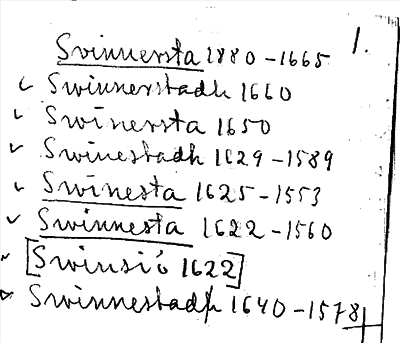 Svinnersta 1880-1665 1.
Swinnerstadh 1660
Swinersta 1650
Swinestadh 1629-1589
Swinesta 1625-1553
Swinnesta 1622-1560
[Swinsiö 1622]
Swinnestadh 1640-1578